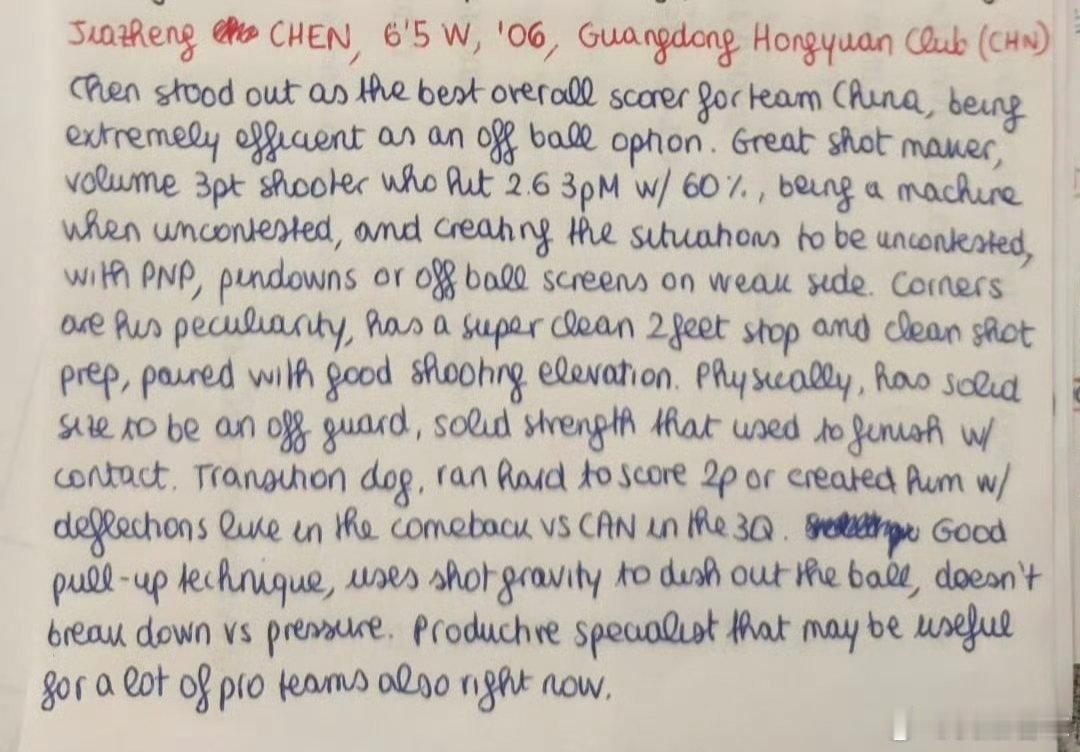 Jiazheng CHEN, 6'5 W, '06, Guangdong Hongyuan Club (CHN)
Chen stood out as the best overall scorer for team China, being
extremely efficient as an off ball option. Great shot maker,
volume 3pt shooter who put 2.6 3pM w/ 60%, being a machine
when uncontested, and creating the situations to be uncontested,
with PNP, pindowns or off ball screens on weak side. Corners
are his peculiarity, has a super clean 2 feet stop and clean shot
prep, paired with good shooting elevation. Physically, has solid
size to be an off guard, solid strength that used to finish w/
contact. Transition dog, ran hard to score 2p or created them w/
deflections like in the comeback vs CAN in the 3Q. Good
pull-up technique, uses shot gravity to dish out the ball, doesn't
break down vs pressure. Productive specialist that may be useful
for a lot of pro teams also right now.